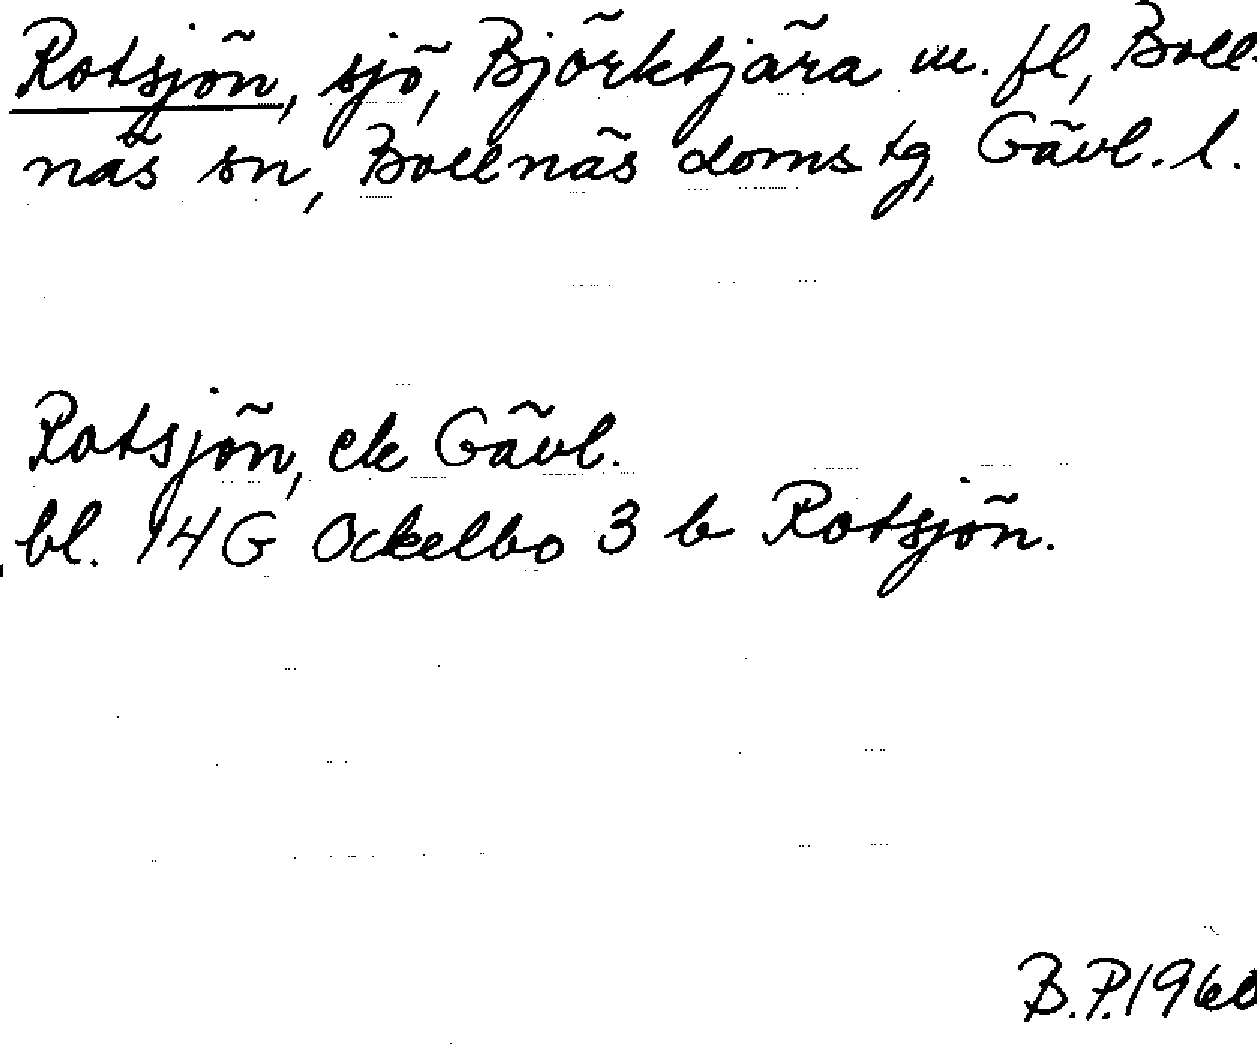 Rotsjön, sjö, Björktjära m. fl, Boll-
näs sn, Bollnäs doms tg, Gävl. l.
Rotsjön, ek Gävl.
bl. 14G Ockelbo 3 b Rotsjön.
B.P. 1960